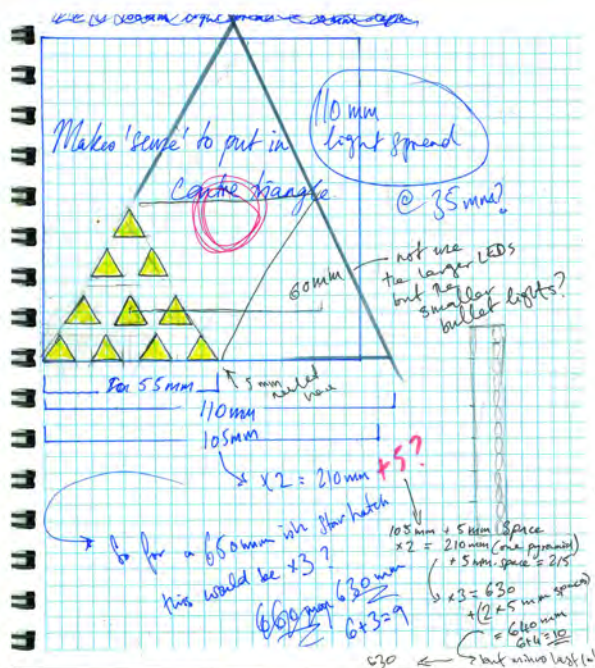 Makes 'sense' to put in
centre triangle
110mm
light spread
@ 35mm?
60mm
not use
the larger LEDs
but the
smaller
bullet lights?
55mm
5mm
needed
here
110mm
105mm
x2 = 210mm +5?
So for a 650mm ish star hatch
this would be x3?
630mm
6+3=9
105mm + 5mm space
x2 = 210mm (one pyramid)
+ 5mm space = 215
x3 = 630
+(2 x 5mm spaces)
= 640mm
6+4=10
630
but minus last